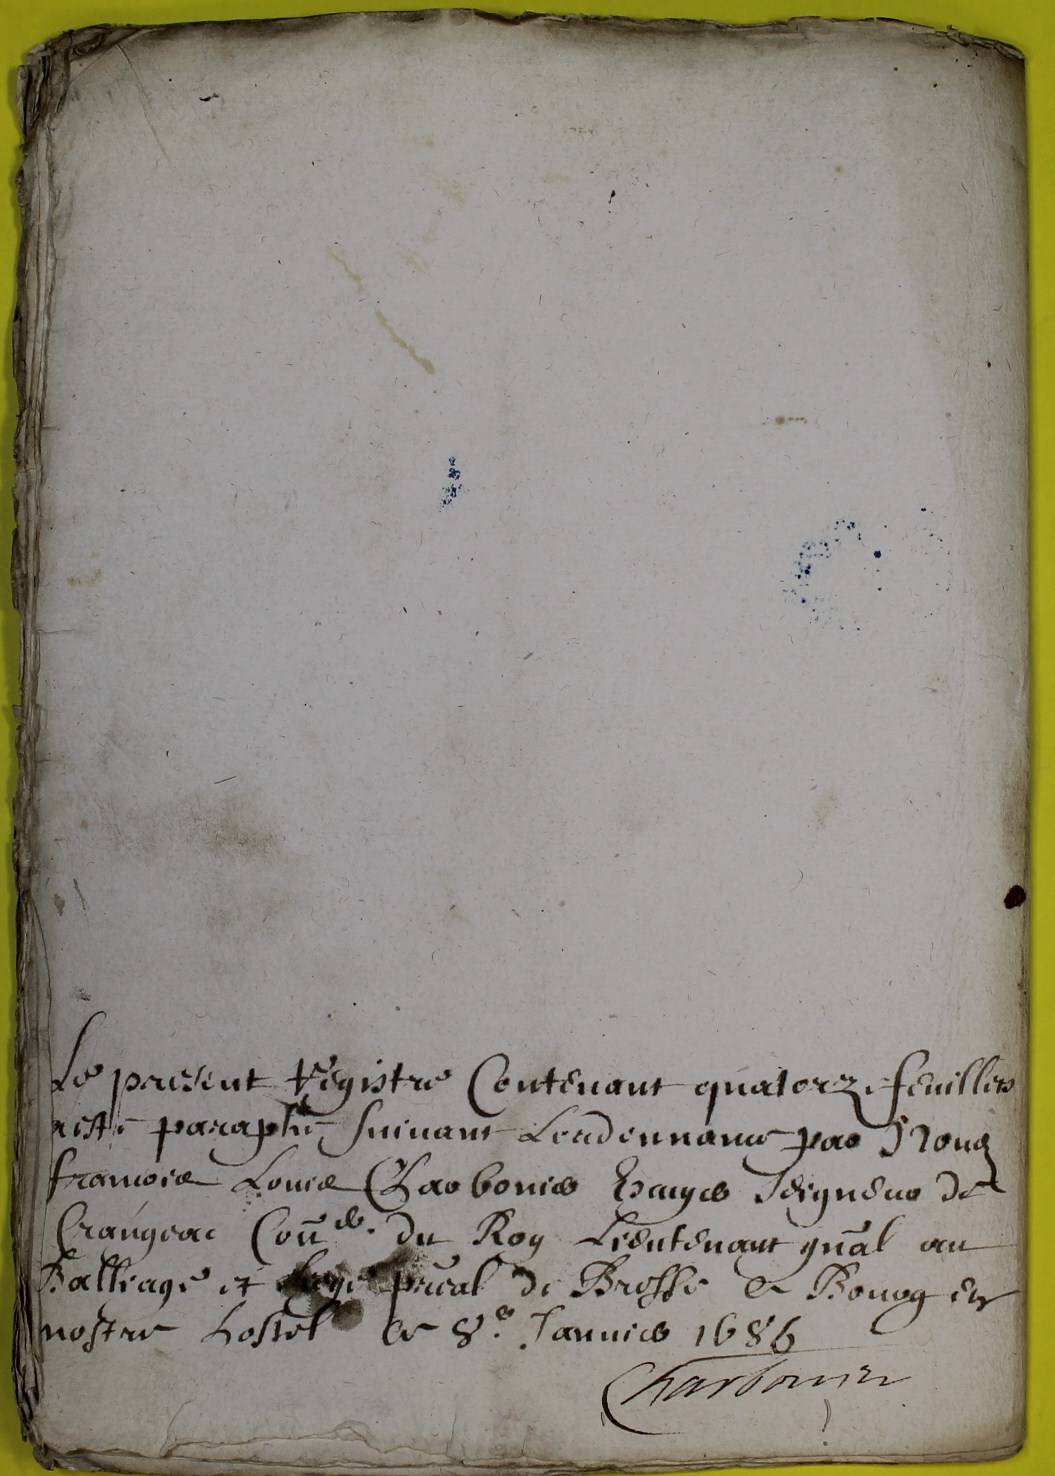 Le present Registre Contenant quatorze feuillets
a esté paraphé suivant Lordonnance par Nous
francois Louis Charbonier Escuyer Seigneur De
Crangeac Cou.er du Roy Lieutenant gnal au
Balliage et siege pñcal de Bresse a Bourg en
nostre hostel ce 8.e Janvier 1686
Charbonier